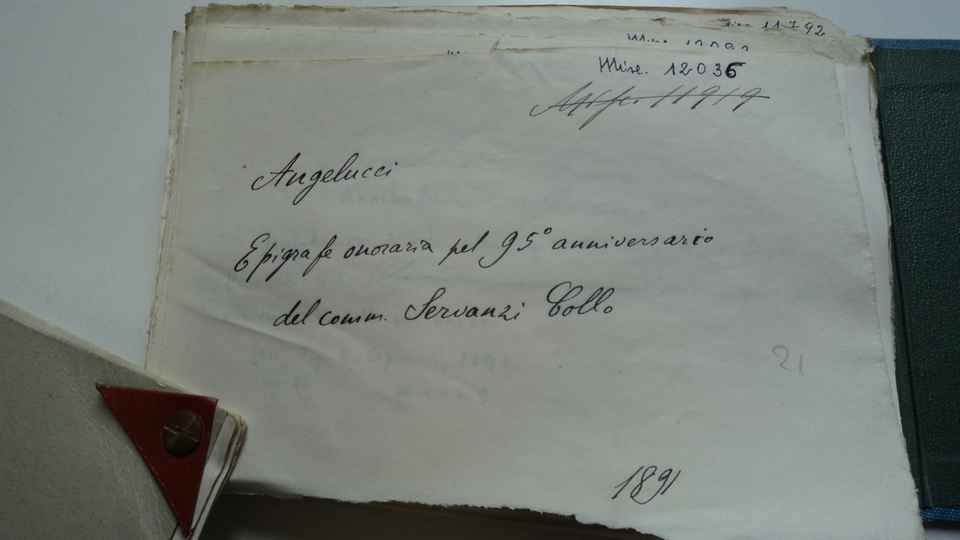 11792
Misc. 12036
11919
Angelucci
Epigrafe onoraria pel 95º anniversario
del comm. Servanzi Collo
21
1891